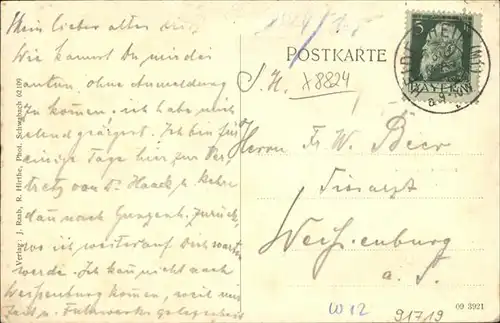 Mein lieber alter
Wie kannst Du mir das
antun, ohne Anmeldung
zu kommen, ich habe mich
elend geärgert. Ich bin für
einige Tage hier zur Ver-
tretg von Dr. Haack u. kehre
dan nach Gunzenh. zurück,
wo ich weiter auf Dich warten
werde. Ich kann nicht nach
Weißenburg kommen, weil mir
Zeit u. Fuhrwerksgelegenheit
Verlag: J. Raab, R. Hirthe, Phot. Schwabach 62109
POSTKARTE
S. H.
X8824
5
BAYERN
Herrn Fr. W. Beer
Tierarzt
Weißenburg
a. S.
09 3921
W 12
91719